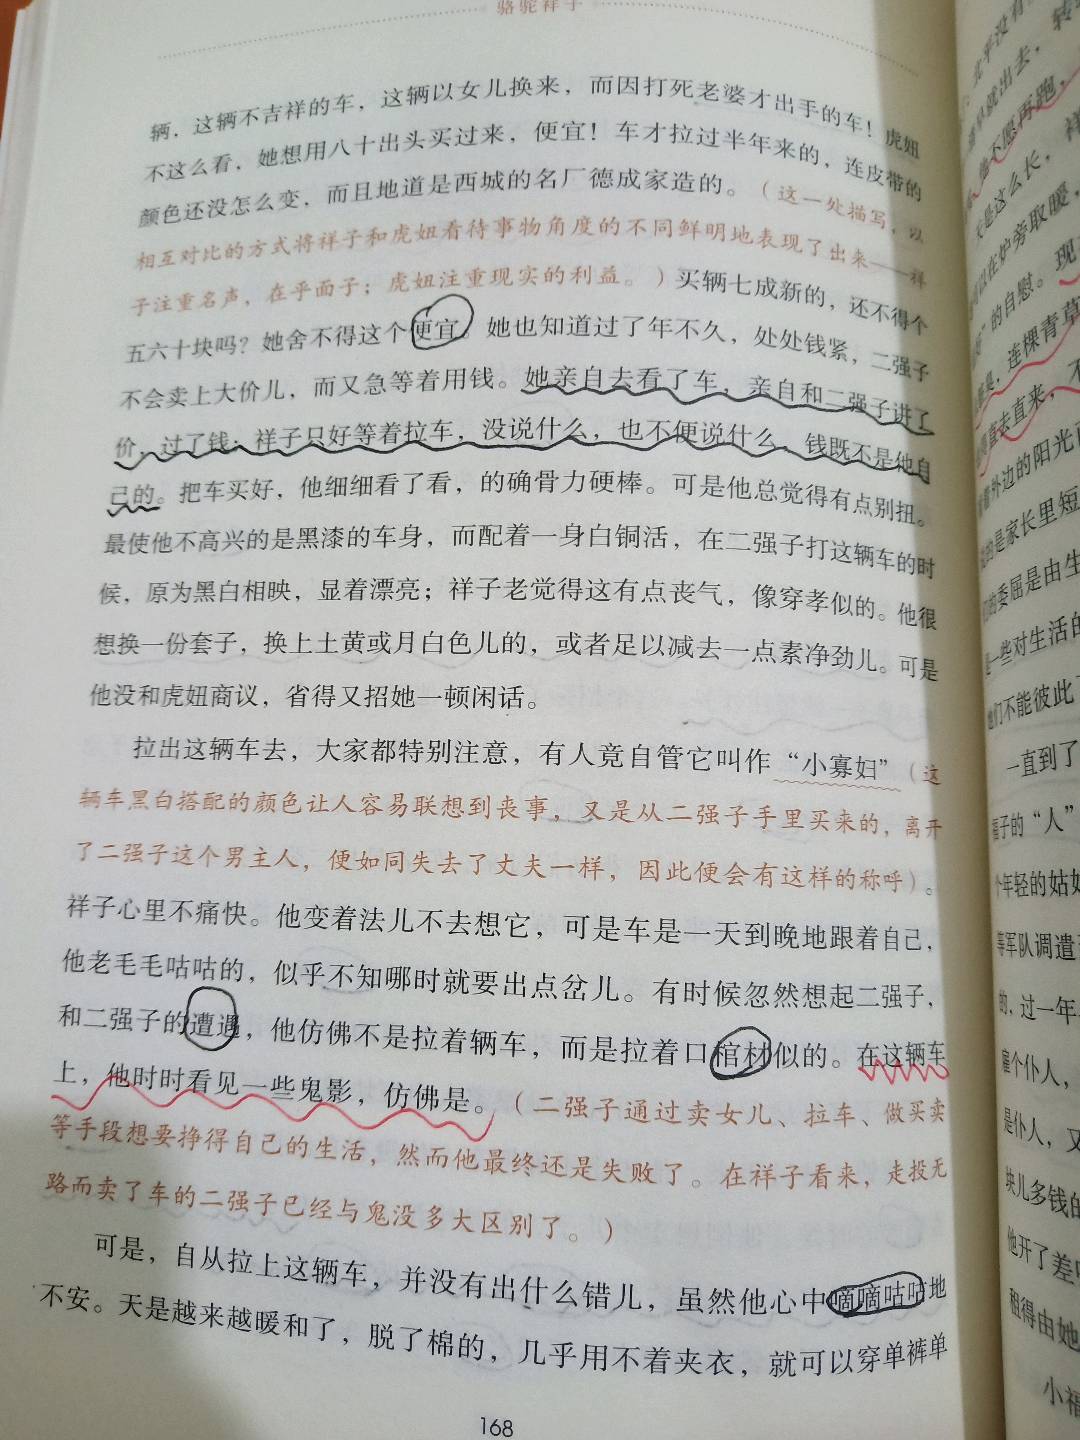 骆驼祥子
辆，这辆不吉祥的车，这辆以女儿换来，而因打死老婆才出手的车！虎妞
不这么看，她想用八十出头买过来，便宜！车才拉过半年来的，连皮带的
颜色还没怎么变，而且地道是西城的名厂德成家造的。（这一处描写，以
相互对比的方式将祥子和虎妞看待事物角度的不同鲜明地表现了出来——祥
子注重名声，在乎面子；虎妞注重现实的利益。）买辆七成新的，还不得个
五六十块吗？她舍不得这个便宜。她也知道过了年不久，处处钱紧，二强子
不会卖上大价儿，而又急等着用钱。她亲自去看了车，亲自和二强子讲了
价，过了钱；祥子只好等着拉车，没说什么，也不便说什么，钱既不是他自
己的。把车买好，他细细看了看，的确骨力硬棒。可是他总觉得有点别扭。
最使他不高兴的是黑漆的车身，而配着一身白铜活，在二强子打这辆车的时
候，原为黑白相映，显着漂亮；祥子老觉得这有点丧气，像穿孝似的。他很
想换一份套子，换上土黄或月白色儿的，或者足以减去一点素净劲儿。可是
他没和虎妞商议，省得又招她一顿闲话。
拉出这辆车去，大家都特别注意，有人竟自管它叫作“小寡妇”（这
辆车黑白搭配的颜色让人容易联想到丧事，又是从二强子手里买来的，离开
了二强子这个男主人，便如同失去了丈夫一样，因此便会有这样的称呼）。
祥子心里不痛快。他变着法儿不去想它，可是车是一天到晚地跟着自己，
他老毛毛咕咕的，似乎不知哪时就要出点岔儿。有时候忽然想起二强子，
和二强子的遭遇，他仿佛不是拉着辆车，而是拉着口棺材似的。在这辆车
上，他时时看见一些鬼影，仿佛是。（二强子通过卖女儿、拉车、做买卖
等手段想要挣得自己的生活，然而他最终还是失败了。在祥子看来，走投无
路而卖了车的二强子已经与鬼没多大区别了。）
可是，自从拉上这辆车，并没有出什么错儿，虽然他心中嘀嘀咕咕地
不安。天是越来越暖和了，脱了棉的，几乎用不着夹衣，就可以穿单裤单
168